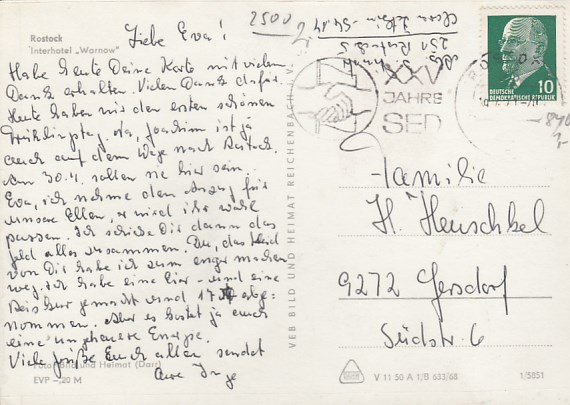 Rostock
Interhotel „Warnow"
Liebe Eva!
Habe heute Deine Karte mit vielem
Dank erhalten. Vielen Dank dafür.
Heute haben wir den ersten schönen
Frühlingstag. Na, Joachim ist ja
auch auf dem Wege nach Rostock.
Am 30.4. sollen sie hier sein.
Eva, ich nehme den Anzug für
unsere Ellen, er wird ihr wohl
passen. Ich schicke Dir dann das
Geld alles zusammen. Du, das Kleid
von Dir habe ich zum enger machen
weg. Ich habe eine Eier- und eine
Reiskur gemacht und 17 abge-
nommen. Aber es kostet ja auch
eine ungeheure Energie.
Viele Grüße Euch allen sendet
Eure Inge
Foto: Bild und Heimat (Darr)
EVP -,20 M
VEB BILD UND HEIMAT REICHENBACH i. V.
2500
251 Rostock 5
XXV
JAHRE
SED
10
DEUTSCHE
DEMOKRATISCHE REPUBLIK
Familie
H. Heuschkel
9272 Gersdorf
Südstr. 6
V 11 50 A 1/B 633/68
1/5851